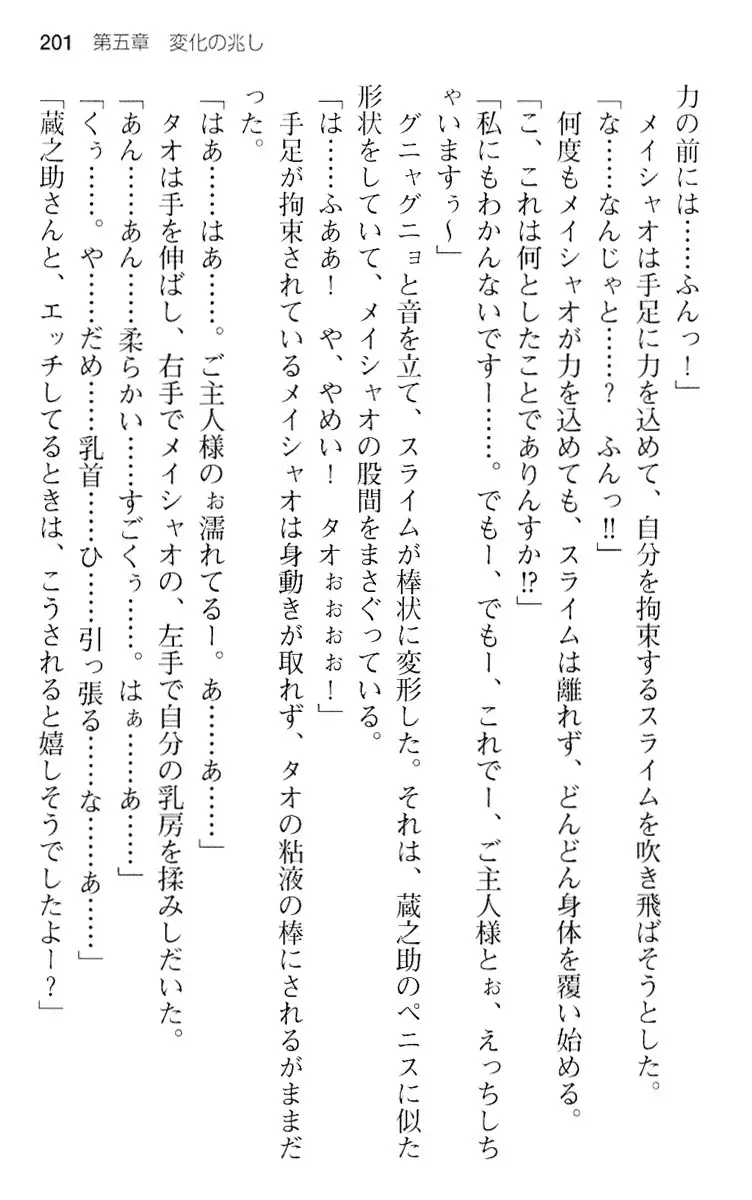 201 第五章 変化の兆し
力の前には……ふんっ！」
　メイシャオは手足に力を込めて、自分を拘束するスライムを吹き飛ばそうとした。
「な……なんじゃと……？　ふんっ‼」
　何度もメイシャオが力を込めても、スライムは離れず、どんどん身体を覆い始める。
「こ、これは何としたことでありんすか⁉」
「私にもわかんないですー……。でもー、でもー、これでー、ご主人様とぉ、えっちしち
ゃいますぅ〜」
　グニャグニョと音を立て、スライムが棒状に変形した。それは、蔵之助のペニスに似た
形状をしていて、メイシャオの股間をまさぐっている。
「は……ふああ！　や、やめい！　タオぉぉぉぉ！」
　手足が拘束されているメイシャオは身動きが取れず、タオの粘液の棒にされるがままだ
った。
「はあ……はあ……。ご主人様のぉ濡れてるー。あ……あ……」
　タオは手を伸ばし、右手でメイシャオの、左手で自分の乳房を揉みしだいた。
「あん……あん……柔らかい……すごくぅ……。はぁ……あ……」
「くぅ……。や……だめ……乳首……ひ……引っ張る……な……あ……」
「蔵之助さんと、エッチしてるときは、こうされると嬉しそうでしたよー？」